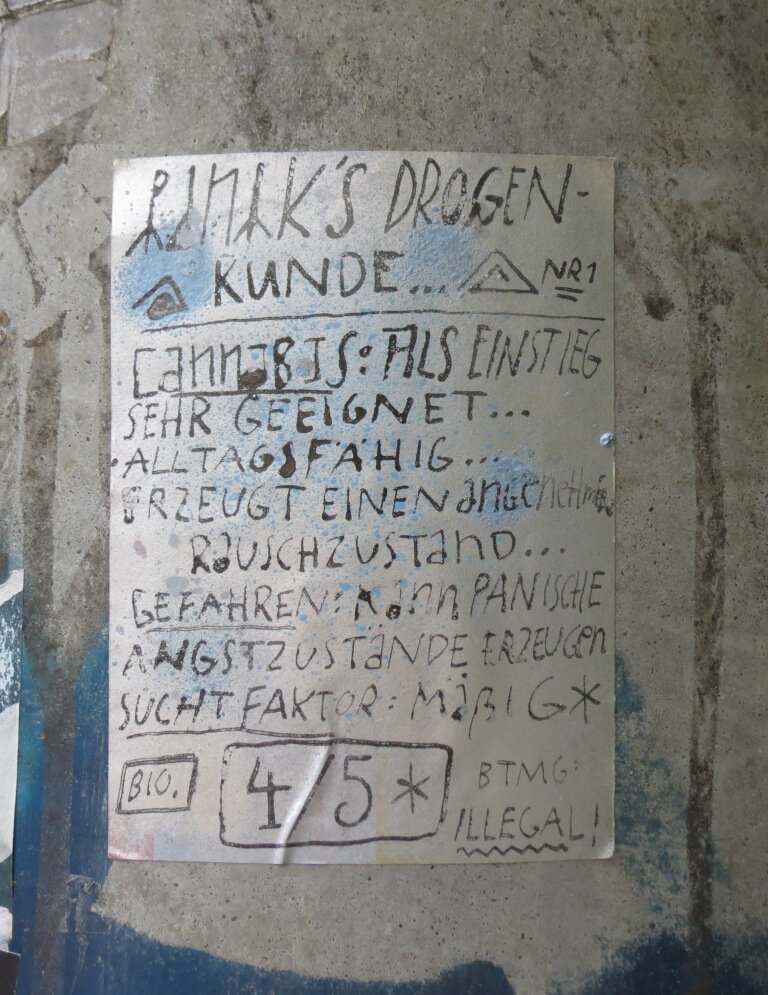 DROGEN-
KUNDE... NR1
CannaBIS: ALS EINSTIEG
SEHR GEEIGNET...
ALLTAGSFÄHIG...
ERZEUGT EINEN angenehmen
RauSCHZUSTanD...
GEFAHREN: Kann PANISCHE
ANGSTZUSTäNDE ERZEUGen
SUCHTFAKTOR: MäßIG*
BIO. 4/5* BTMG:
ILLEGAL!